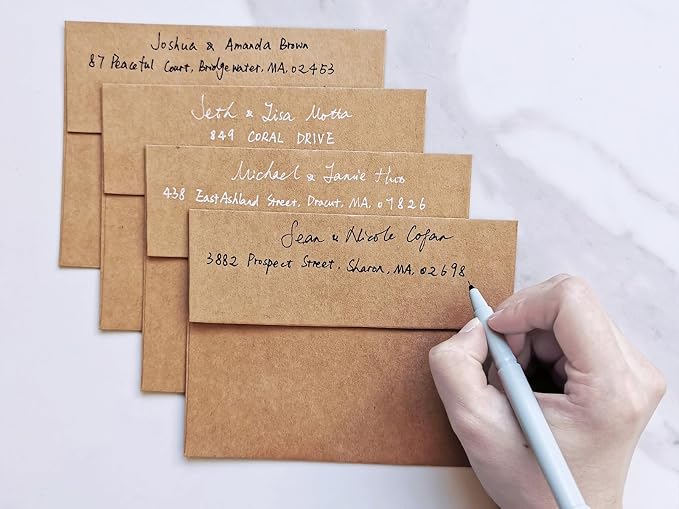 Joshua & Amanda Brown
87 Peaceful Court, Bridgewater, MA, 02453
Seth & Lisa Motta
849 CORAL DRIVE
Michael & Jamie Huo
438 East Ashland Street, Dracut, MA, 07826
Sean & Nicole Cofan
3882 Prospect Street, Sharon, MA, 02698